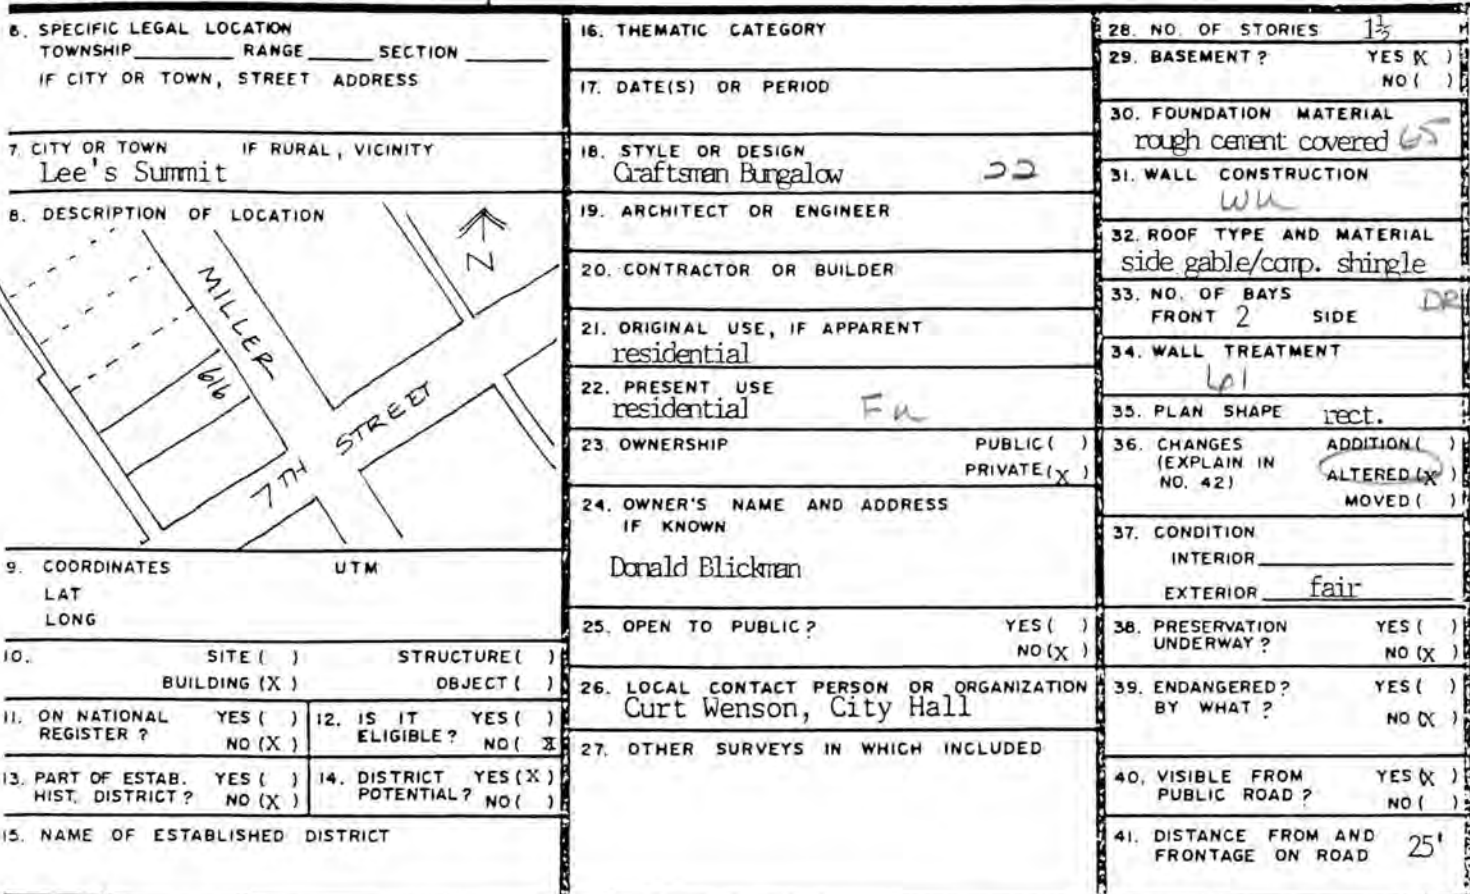 6. SPECIFIC LEGAL LOCATION
TOWNSHIP RANGE SECTION
IF CITY OR TOWN, STREET ADDRESS
7. CITY OR TOWN IF RURAL, VICINITY
Lee's Summit
8. DESCRIPTION OF LOCATION
N
MILLER
616
7TH STREET
9. COORDINATES UTM
LAT
LONG
10. SITE ( ) STRUCTURE ( )
BUILDING (X) OBJECT ( )
11. ON NATIONAL REGISTER ? YES ( )
NO (X)
12. IS IT ELIGIBLE ? YES ( )
NO ( X
13. PART OF ESTAB. HIST. DISTRICT ? YES ( )
NO (X)
14. DISTRICT POTENTIAL ? YES (X)
NO ( )
15. NAME OF ESTABLISHED DISTRICT
16. THEMATIC CATEGORY
17. DATE(S) OR PERIOD
18. STYLE OR DESIGN
Craftsman Bungalow 22
19. ARCHITECT OR ENGINEER
20. CONTRACTOR OR BUILDER
21. ORIGINAL USE, IF APPARENT
residential
22. PRESENT USE
residential
23. OWNERSHIP PUBLIC ( )
PRIVATE (X)
24. OWNER'S NAME AND ADDRESS
IF KNOWN
Donald Blickman
25. OPEN TO PUBLIC ? YES ( )
NO (X)
26. LOCAL CONTACT PERSON OR ORGANIZATION
Curt Wenson, City Hall
27. OTHER SURVEYS IN WHICH INCLUDED
28. NO. OF STORIES 1½
29. BASEMENT ? YES (X)
NO ( )
30. FOUNDATION MATERIAL
rough cement covered 65
31. WALL CONSTRUCTION
32. ROOF TYPE AND MATERIAL
side gable/comp. shingle
33. NO. OF BAYS
FRONT 2 SIDE
34. WALL TREATMENT
61
35. PLAN SHAPE rect.
36. CHANGES ADDITION ( )
(EXPLAIN IN ALTERED (X)
NO. 42) MOVED ( )
37. CONDITION
INTERIOR
EXTERIOR fair
38. PRESERVATION UNDERWAY ? YES ( )
NO (X)
39. ENDANGERED ? YES ( )
BY WHAT ? NO (X)
40. VISIBLE FROM PUBLIC ROAD ? YES (X)
NO ( )
41. DISTANCE FROM AND 25'
FRONTAGE ON ROAD